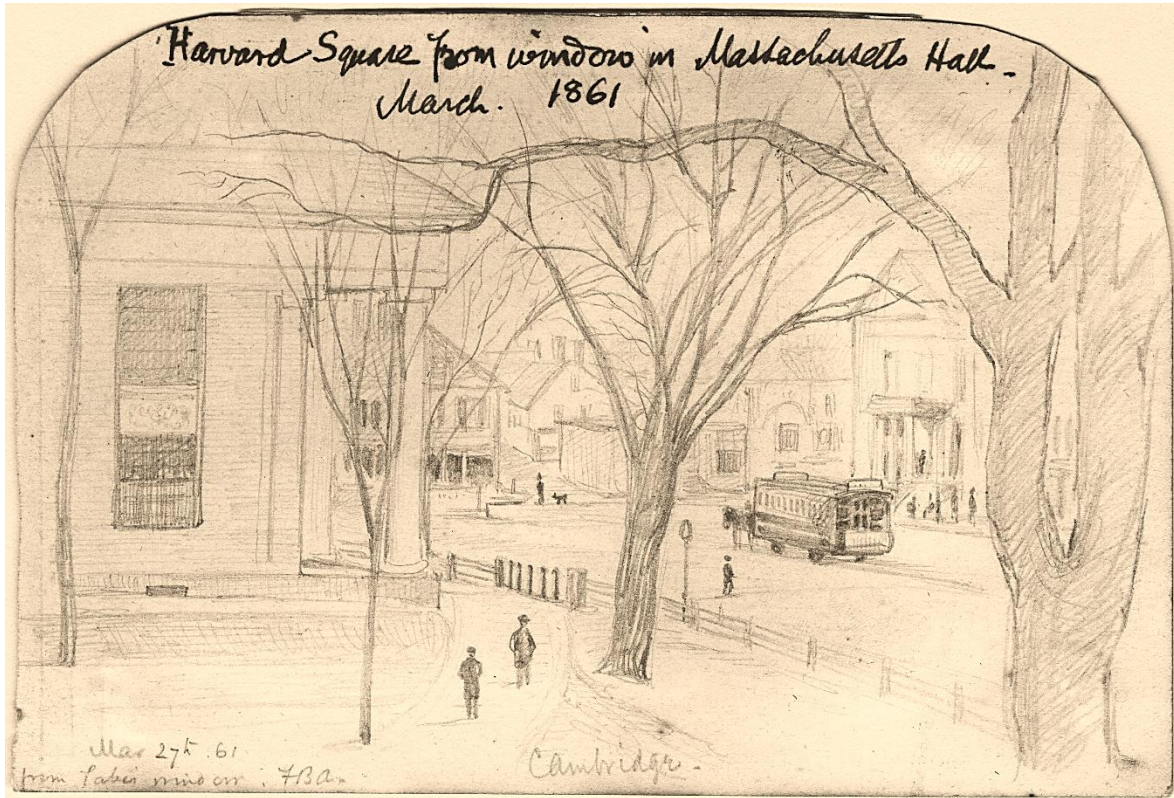 'Harvard Square from window in Massachusetts Hall -
March. 1861
Mar 27th. 61
from window. FBA.
Cambridge -